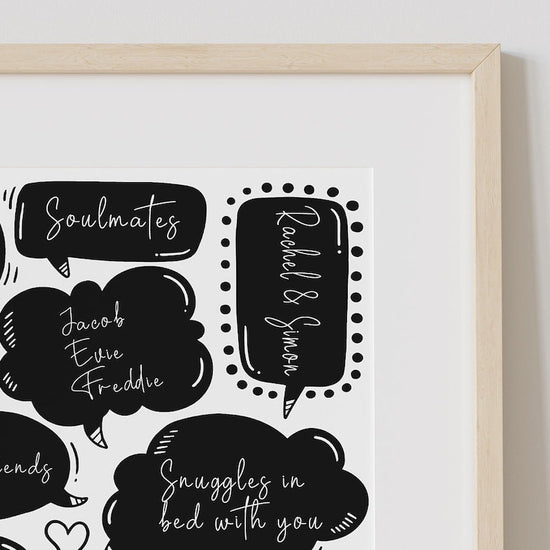 Soulmates
Rachel & Simon
Jacob
Evie
Freddie
ends
Snuggles in
bed with you